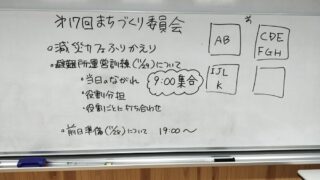 第17回まちづくり委員会
○減災カフェふりかえり
○避難所運営訓練(11/29)について
・当日のながれ
9:00集合
・役割分担
・役割ごとに打ち合わせ
○前日準備(11/28)について 19:00〜
AB
CDE
FGH
IJL
K